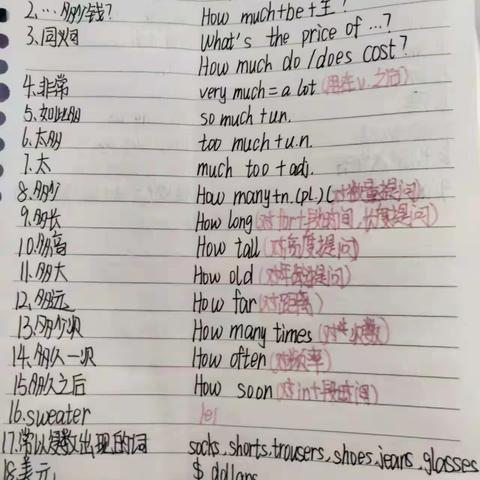 2....多少钱? How much+be+主?
3.同义词 What's the price of ...?
How much do/does cost?
4.非常 very much=a lot(用在v.之后)
5.如此多 so much+un.
6.太多 too much+u.n.
7.太 much too+adj.
8.多少 How many+n.(pl.)(对数量提问)
9.多长 How long(对for+段时间,长度提问)
10.多高 How tall(对高度提问)
11.多大 How old(对年龄提问)
12.多远 How far(对距离)
13.多少次 How many times(对次数)
14.多久一次 How often(对频率)
15.多久之后 How soon(对in+段时间)
16.sweater /e/
17.常以复数出现的词 socks,shorts,trousers,shoes,jeans,glasses
18.美元 $ dollars